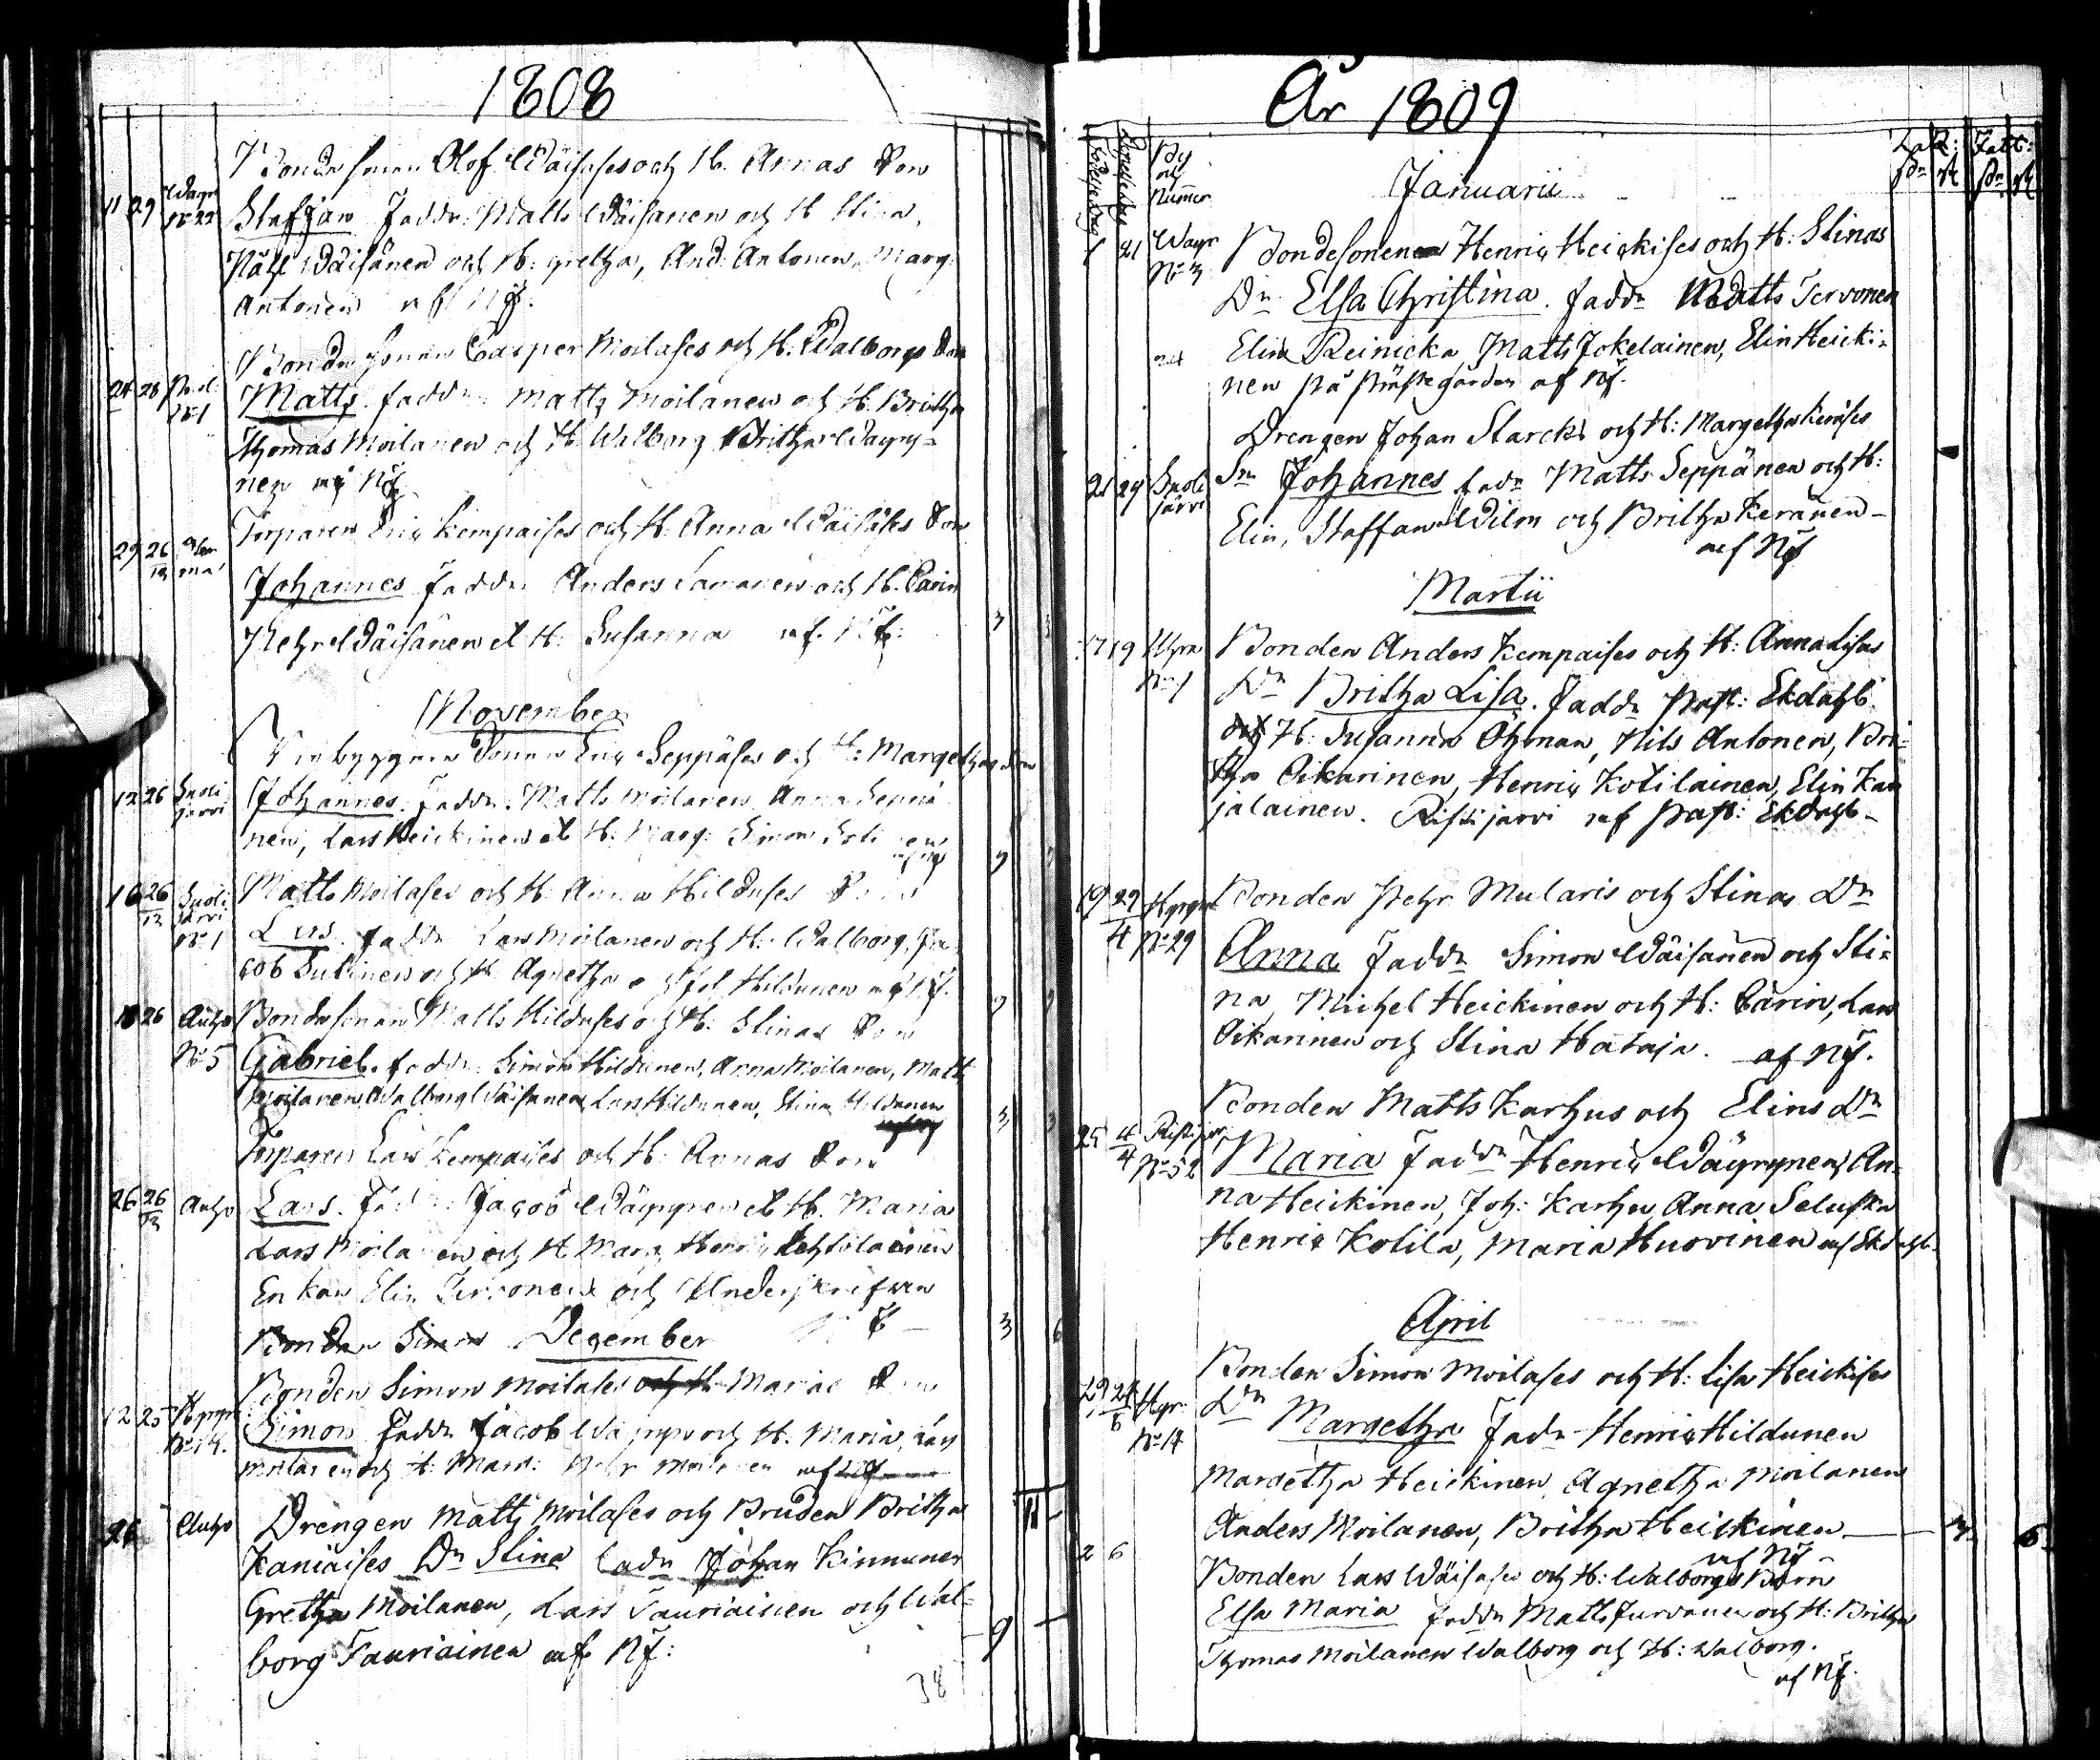 1808
Bondesonen Olof Wäisäses och H. Annas Son
11 29 Wäyr N:22 Staffan Fadd: Matts Wäisänen och H Stina,
Påhl Wäisänen och H: Gretha, And: Antonen, Marg:
Antonen af NJ.
Bondesonen Casper Moilases och H. Walborgs Son
24 28 N:1 Matts. fadd: Matts Moilanen och H. Britha
Thomas Moilanen och H Walborg Britha Wäyry=
nen af NJ
Torparen Eric Kempaises och H. Anna Wäisäses Son
29 26/12 Johannes Fadd: Anders och H. Carin
Pehr Wäisänen et H: Susanna af NJ:
November
Nybyggare Sonen Eric Seppäses och H: Margethas Son
12 26 Suoli järvi Johannes. Fadd: Matts Moilanen, Anna Seppä
nen, Lars Heickinen et H: Marg: Simon
af NJ
16 26/12 Suoli järvi N:1 Matts Moilases och H: Anna Hilduses Son
Lars. fadd: Lars Moilanen och H: Walborg, Ja
cob Sutinen och H Agnetha Hildunen af NJ.
18 26 Autio N:5 Bondesonen Matts Hilduses och H: Stinas Son
Gabriel. fadd: Simon Hildunen, Anna Moilanen, Matts
Moilanen, Walborg Wäisänen, Lars Hildunen, Stina Hildunen
Torparen Lars Kempaises och H: Annas Son
26 26/12 Autio Lars. Fadd: Jacob Wäyrynen et H. Maria
Lars Moilanen och H. Marg, Henric Lehtolainen
Enkan Elin Tervonen och Underskrifven
Bonden Simon December
Bonden Simon Moilases och H. Marias Son
12 25 Hyryn N:14. Simon Fadd: Jacob Wäyryn och H. Maria, Lars
Moilanen och H: Marg: Pehr Moilanen af NJ
26 Autio Drengen Matts Moilases och Bruden Britha
Kaniaises Dr Stina fadr Johan Kinnunen
Gretha Moilanen, Lars Tauriainen och Wal=
borg Tauriainen af NJ:
9
38
År 1809
By och Numer
Januarii
1 21 Wäyr N:3 Bondesonen Henric Heickises och H: Stinas
Dr. Elsa Christina. fadd: Matts Tervonen
Elin Reinicka, Matts Jokelainen, Elin Heicki=
nen på Prästegården af NJ.
Drengen Johan Starcks och H: Margetha Keräses
21 24 Suoli järvi Sn Johannes fadr Matts Seppänen och H:
Elin, Staffan Wilm och Britha Keränen—
af NJ
Martii
17 19 N:1 Bonden Anders Kempaises och H: Anna Lisas
Dr Britha Lisa. Fadd: Past: Ekdahl
och H: Susanna Öhman, Nils Antonen, Bri=
tha Oikarinen, Henric Kotilainen, Elin Kar
jalainen. Ristijärvi af Past: Ekdahl—
19 29/4 Hyryn N:29 Bonden Pehr Mularis och Stinas Dr
Anna Fadd: Simon Wäisänen och Sti=
na, Michel Heickinen och H: Carin, Lars
Oikarinen och Stina Hataja. af NJ.
Bonden Matts Karhus och Elins Dr
25 4/4 Ristijer N:52 Maria Fadd: Henric Wäyrynen, An=
na Heickinen, Joh: Karhu, Anna Seluska
Henric Kotila, Maria Huovinen af Ekdahl
April
Bonden Simon Moilases och H: Lisa Heickises
Hyr: N:14 Dr Margetha Fadr Henric Hildunen
Margetha Heickinen, Agnetha Moilanen
Anders Moilanen, Britha Heickinen—
af NJ—
2 6 Bonden Lars Wäisäses och H: Walborgs Barn
Elsa Maria fadd: Matts Juvonen och H: Britha
Thomas Moilanen Walborg och H: Walborg.
af NJ.